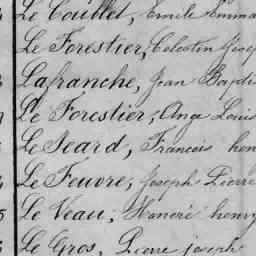 Le Couillet, Emile Emma
Le Forestier, Celestin Josep
Lafranche, Jean Bapti
Le Forestier, Ange Louis
Le Seard, Francois hen
Le Feuvre, Joseph Pierre
Le Veau, henry
Le Gros, Pierre joseph